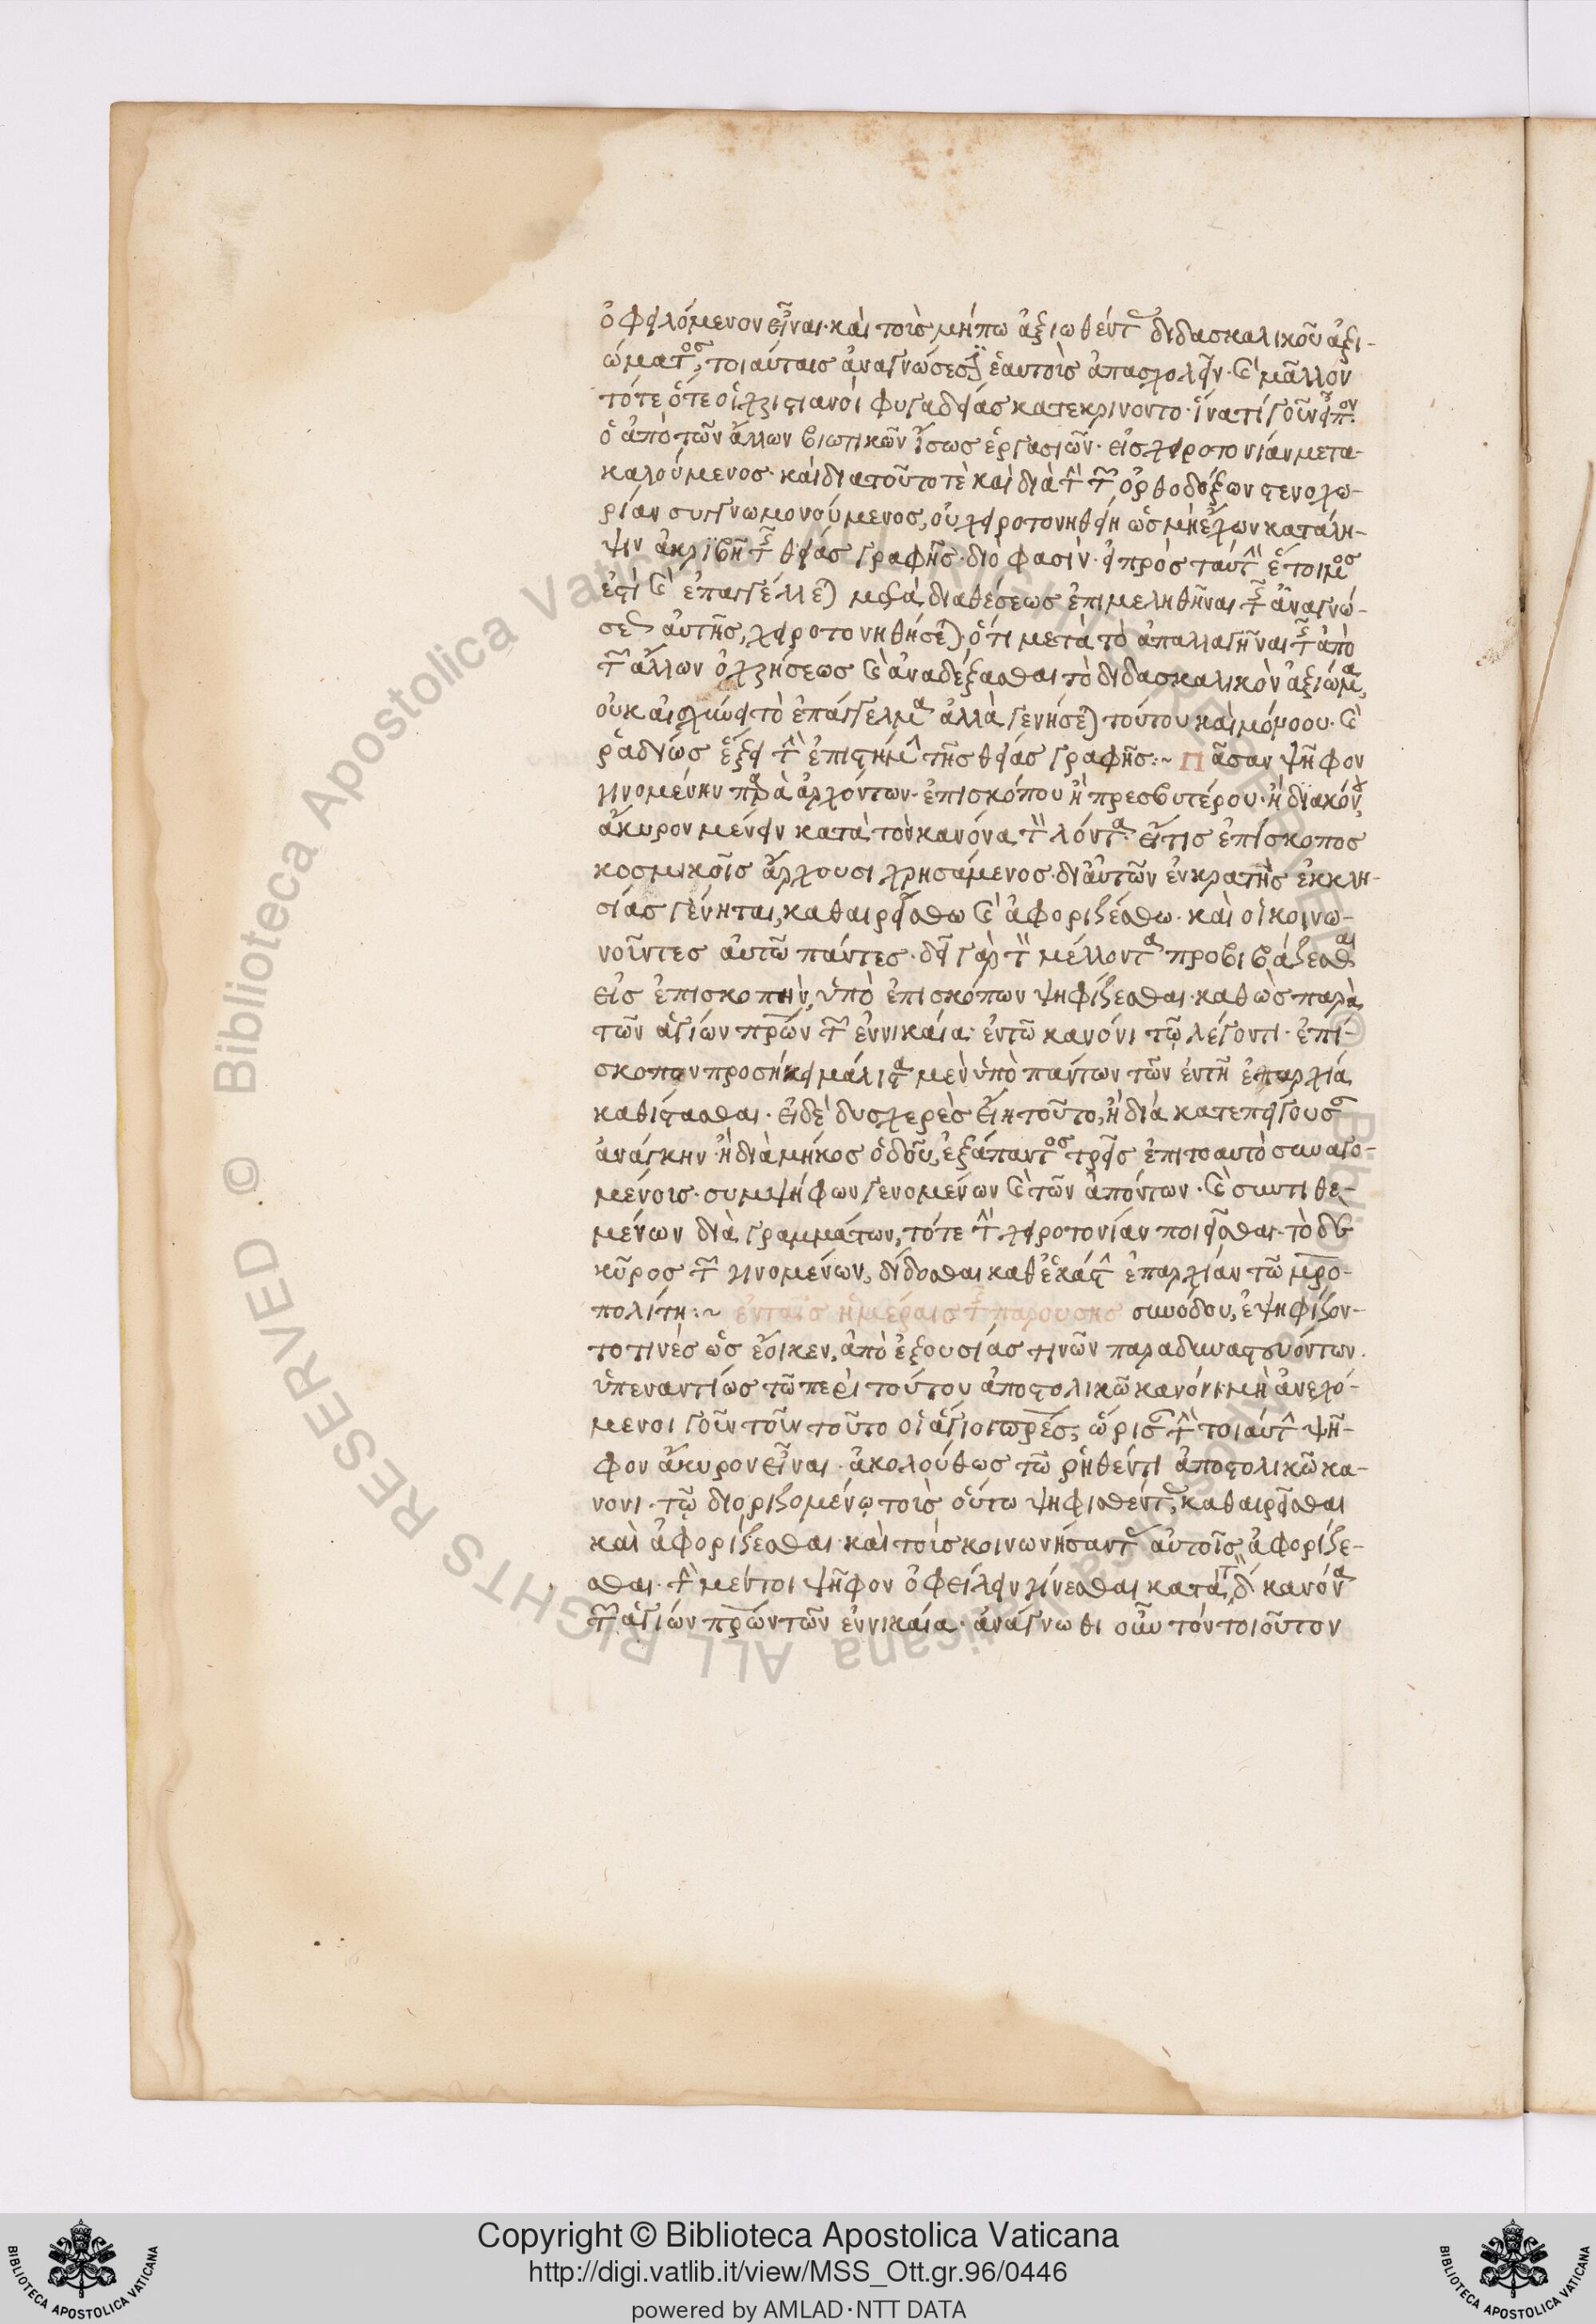 ὀφειλόμενον εἶναι· καὶ τοῖς μήπω ἀξιωθέντ διδασκαλικοῦ ἀξι-
ώματος, τοιαύταις ἀναγνώσεσι ἑαυτοὺς ἀπασχολεῖν· καὶ μᾶλλον
τότε ὅτε οἱ χριστιανοὶ φυγαδείας κατεκρίνοντο· ἵνα τί γοῦν εἶπον
ὁ ἀπὸ τῶν ἄλλων βιωτικῶν ἴσως ἐργασιῶν· εἰς χειροτονίαν μετα-
καλούμενος· καὶ διατοῦτο τὲ καὶ διὰ τὴν τῶν ὀρθοδόξων στενοχω-
ρίαν συγγνωμονούμενος, οὐ χειροτονηθείη ὡς μὴ ἔχων κατάλη-
ψιν ἀκριβῆ τῆς θείας γραφῆς· διό φασιν· εἰ πρὸς ταύτην ἕτοιμος
ἐστὶ καὶ ἐπαγγέλλεται μετὰ διαθέσεως ἐπιμεληθῆναι τῆς ἀναγνώ-
σεως αὐτῆς, χειροτονηθήσεται· ὅτι μετὰ τὸ ἀπαλλαγῆναι τῆς ἀπὸ
τῶν ἄλλων ὀχλήσεως καὶ ἀναδέξασθαι τὸ διδασκαλικὸν ἀξίωμα,
οὐκ αἰσχυνεῖ τὸ ἐπάγγελμα ἀλλὰ γενήσεται τούτου καὶ μόνου· καὶ
ῥαδίως ἕξει τὴν ἐπιστήμην τῆς θείας γραφῆς :~ Πᾶσαν ψῆφον
γινομένην παρὰ ἀρχόντων· ἐπισκόπου ἢ πρεσβυτέρου· ἢ διακόνου,
ἄκυρον μένειν κατὰ τὸν κανόνα τὸν λέγοντα· εἴ τις ἐπίσκοπος
κοσμικοῖς ἄρχουσι χρησάμενος· δι αὐτῶν ἐνκρατὴς ἐκκλη-
σίας γένηται, καθαιρείσθω καὶ ἀφοριζέσθω· καὶ οἱ κοινω-
νοῦντες αὐτῶ πάντες· δεῖ γὰρ τὸν μέλλοντα προβιβάζεσθαι
εἰς ἐπισκοπὴν, ὑπὸ ἐπισκόπων ψηφίζεσθαι· καθὼς παρὰ
τῶν ἁγίων πρων τῶν ἐν νικαία· ἐν τῶ κανόνι τῷ λέγοντι· ἐπί-
σκοπον προσήκει μάλιστα μὲν ὑπὸ πάντων τῶν ἐν τῆ ἐπαρχία
καθίστασθαι· εἰ δὲ δυσχερὲς εἴη τοῦτο, ἢ διὰ κατεπείγουσαν
ἀνάγκην· ἢ διὰ μῆκος ὁδοῦ, ἐξάπαντος τρεῖς ἐπιτοαυτὸ συναγο-
μένοις· συμψήφων γενομένων καὶ τῶν ἀπόντων· καὶ συντιθε-
μένων διὰ γραμμάτων, τότε τὴν χειροτονίαν ποιεῖσθαι· τὸ δὲ
κῦρος τῶν γινομένων, δίδοσθαι καθ ἑκάστην ἐπαρχίαν τῶ μρο-
πολίτη :~ ἐν ταῖς ἡμέραις τῆς παρούσης συνόδου, ἐψηφίζον-
το τινὲς ὡς ἔοικεν, ἀπὸ ἐξουσίας τινῶν παραδυναστευόντων.
ὑπεναντίως τῶ περὶ τούτου ἀποστολικῶ κανόνι· μὴ ἀνεχό-
μενοι γοῦν τοῦτο οἱ ἅγιοι πρες, ὥρισαν τὴν τοιαύτην ψῆ-
φον ἄκυρον εἶναι· ἀκολούθως τῶ ῥηθέντι ἀποστολικῶ κα-
νόνι· τῷ διοριζομένῳ τοὺς οὕτω ψηφισθέντας, καθαιρεῖσθαι
καὶ ἀφορίζεσθαι· καὶ τοὺς κοινωνήσαντας αὐτοῖς ἀφορίζε-
σθαι· τὴν μέντοι ψῆφον ὀφείλειν γίνεσθαι κατὰ τὸν δ κανόνα
τῶν ἁγίων πρων τῶν ἐν νικαία· ἀνάγνωθι οὖν τὸν τοιοῦτον
Copyright © Biblioteca Apostolica Vaticana
http://digi.vatlib.it/view/MSS_Ott.gr.96/0446
powered by AMLAD·NTT DATA
BIBLIOTECA APOSTOLICA VATICANA
BIBLIOTECA APOSTOLICA VATICANA